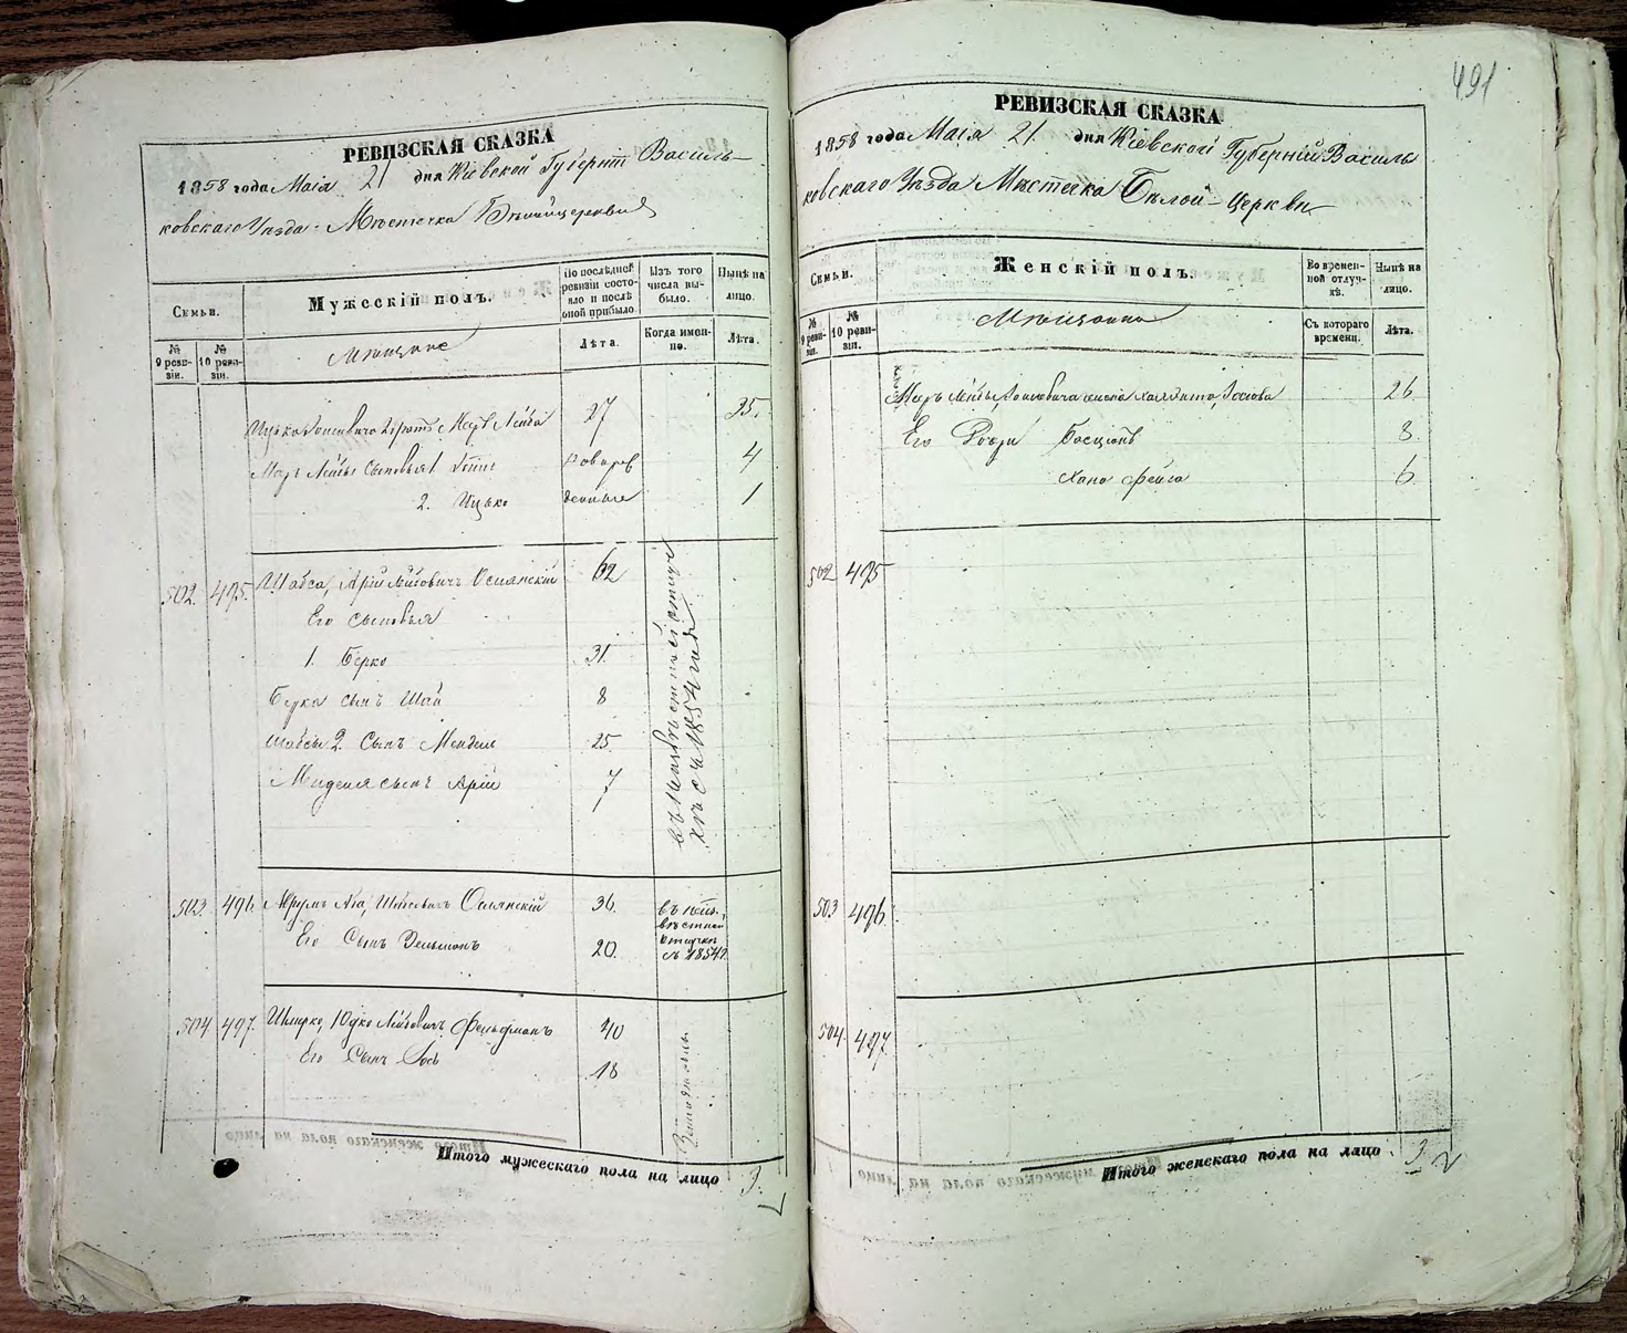 РЕВИЗСКАЯ СКАЗКА
1858 года Маія 21 дня Кіевской Губерніи Василь-
ковскаго Уѣзда Мѣстечка Бѣлойцеркви
Семьи.
№ 9 ревизіи.
№ 10 ревизіи.
Мужескій полъ.
Мѣщане
По послѣдней ревизіи состояло и послѣ оной прибыло
Лѣта.
Изъ того числа выбыло.
Когда именно.
Нынѣ на лицо.
Лѣта.
Ицько братъ Меръ Лейба 27 35.
Меръ Лейбы сыновья 1 новорож 4
2. Ицько денные 1
502. 495. Шабса, Арій Лейбовичъ Ослянскій 62
Его сыновья
1. Берко 31.
Берка сынъ Шая 8
Шабсы 2. Сынъ Мендель 25
Менделя сынъ Арій 7
въ неизвѣстной отлучкѣ съ 1854 года
503. 496. Шабсовичъ Ослянскій 36.
Его Сынъ Зельманъ 20.
въ неизвѣстной отлучкѣ съ 1854 г.
504 497. Шмерко, Юдко Лейбовичъ Фельдманъ 40
Его Сынъ Іось 18
Итого мужескаго пола на лицо 3.
491
РЕВИЗСКАЯ СКАЗКА
1858 года Маія 21. дня Кіевской Губерніи Василь
ковскаго Уѣзда Мѣстечка Бѣлой-Церкви
Семьи.
№ 9 ревизіи.
№ 10 ревизіи.
Женскій полъ.
Мѣщанки
Во временной отлучкѣ.
Съ котораго времени.
Нынѣ на лицо.
Лѣта.
Меръ Лейбы, жена 26.
Его Дочери 8.
Хана Фейга 6.
502 495
503 496.
504. 497.
Итого женскаго пола на лицо 3.